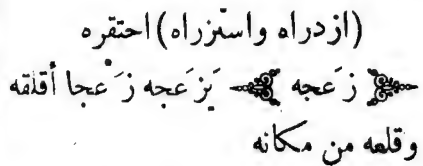 (ازدراه واستزراه) احتقره
زَعجه يَزعَجه زَعْجا أقلقه
وقلعه من مكانه